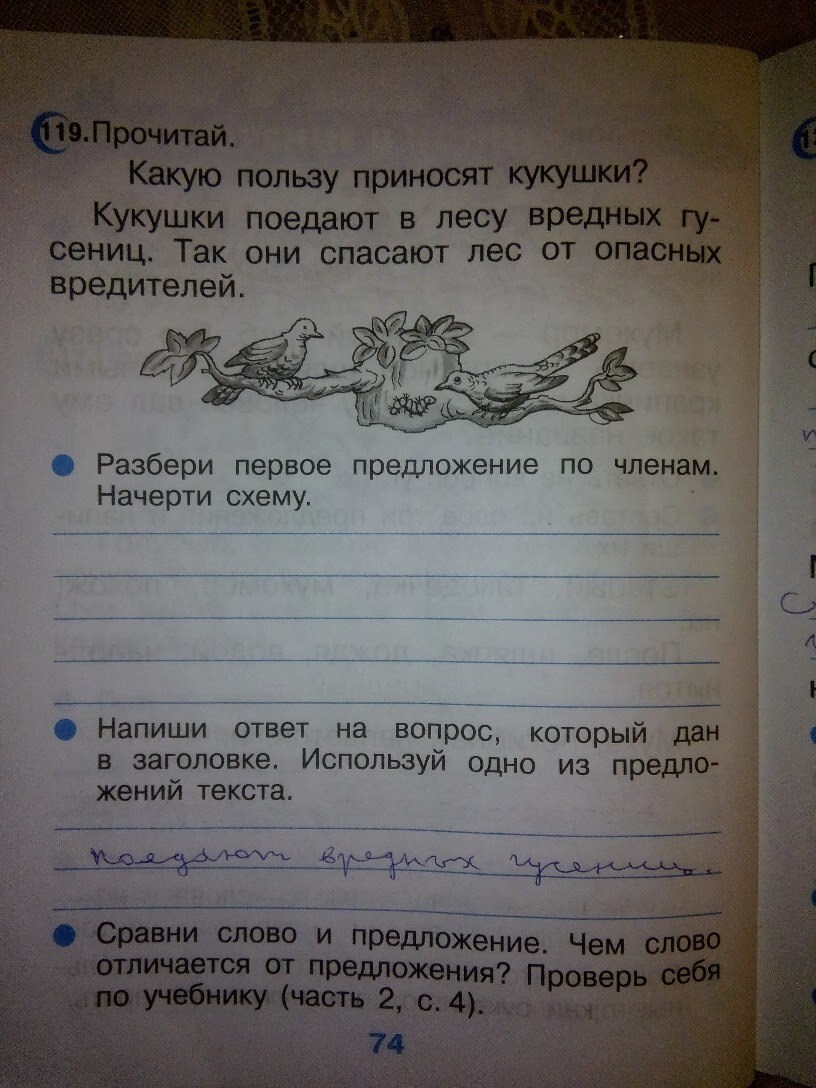 119. Прочитай.
Какую пользу приносят кукушки?
Кукушки поедают в лесу вредных гу-
сениц. Так они спасают лес от опасных
вредителей.
Разбери первое предложение по членам.
Начерти схему.
Напиши ответ на вопрос, который дан
в заголовке. Используй одно из предло-
жений текста.
поедают вредных гусениц.
Сравни слово и предложение. Чем слово
отличается от предложения? Проверь себя
по учебнику (часть 2, с. 4).
74